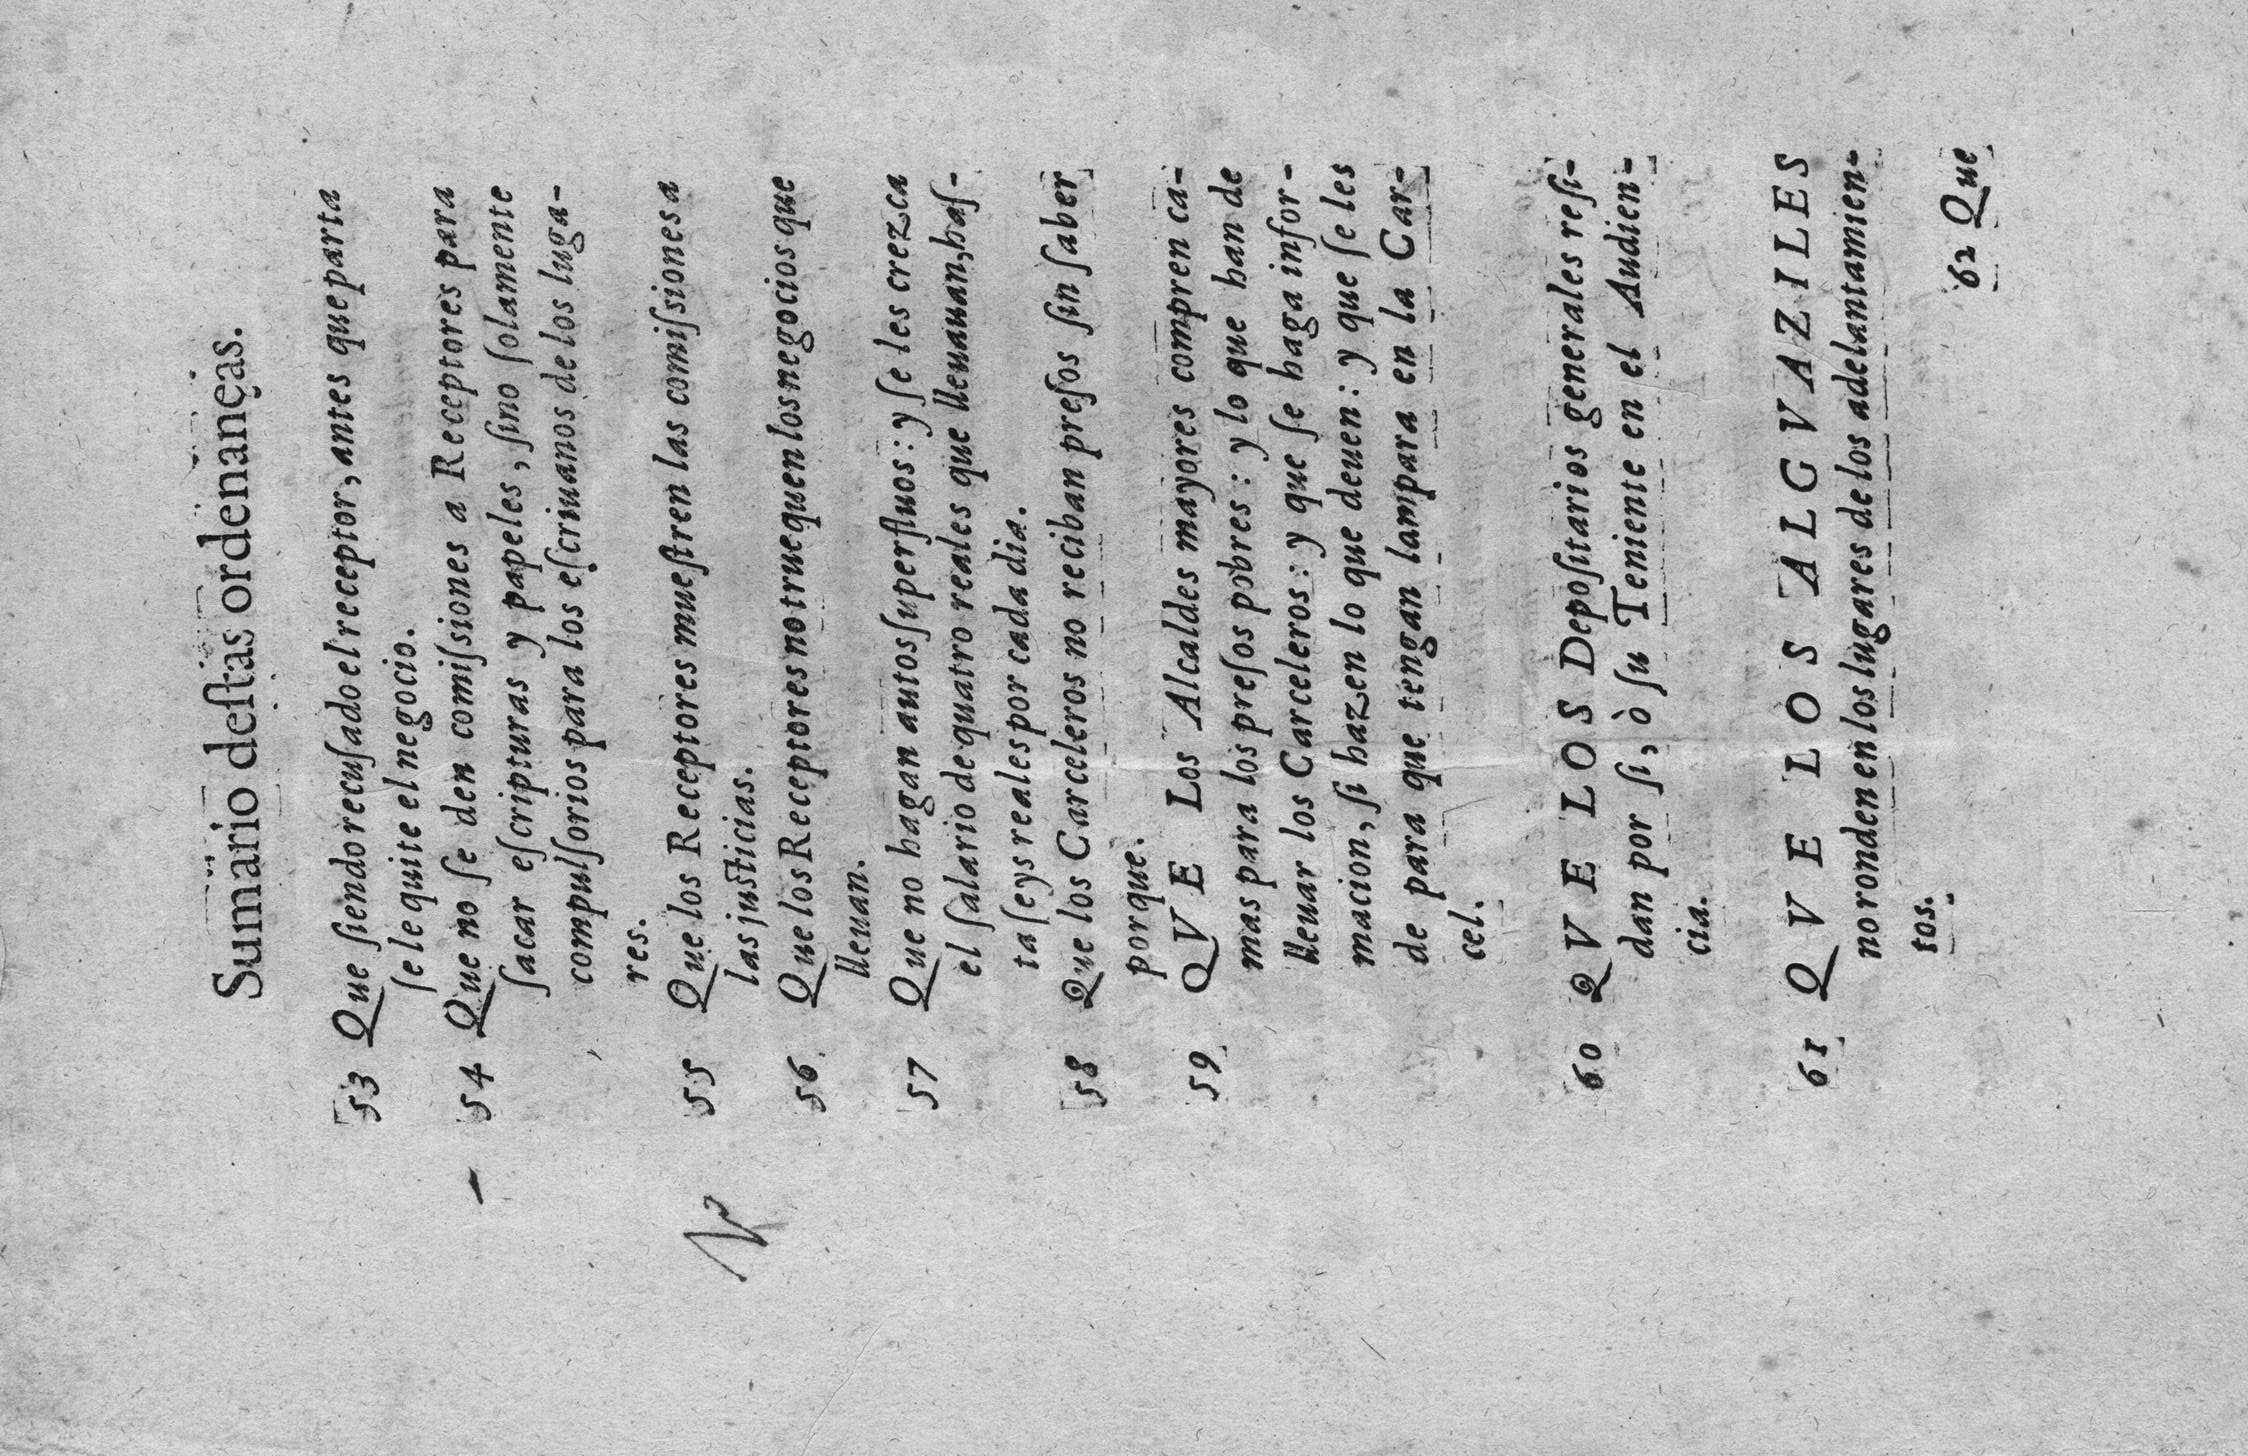 Sumario deſtas ordenanças.
53 Que ſiendo recuſado el receptor, antes que parta
ſe le quite el negocio.
54 Que no ſe den comiſsiones a Receptores para
ſacar eſcripturas y papeles, ſino ſolamente
compulſorios para los eſcriuanos de los luga-
res.
55 Que los Receptores mueſtren las comiſsiones a
las juſticias.
56 Que los Receptores no truequen los negocios que
lleuan.
57 Que no hagan autos ſuperfluos: y ſe les crezca
el ſalario de quatro reales que lleuauan, haſ-
ta ſeys reales por cada dia.
58 Que los Carceleros no reciban preſos ſin ſaber
porque.
59 QVE Los Alcaldes mayores compren ca-
mas para los preſos pobres: y lo que han de
lleuar los Carceleros: y que ſe haga infor-
macion, ſi hazen lo que deuen: y que ſe les
de para que tengan lampara en la Car-
cel.
60 QVE LOS Depoſitarios generales reſi-
dan por ſi, ò ſu Teniente en el Audien-
cia.
61 QVE LOS ALGVAZILES
no ronden en los lugares de los adelantamien-
tos.
62 Que